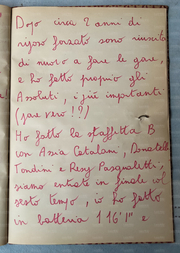 Dopo circa 2 anni di
riposo forzato sono riuscita
di nuovo a fare le gare,
e ho fatto proprio gli
Assoluti, i più importanti
(pare vero!?)
Ho fatto la staffetta B
con Asia Catalani, Donatella
Tondini e Resy Pasqualetti;
siamo entrate in finale col
sesto tempo, io ho fatto
in batteria 1'16'1" e